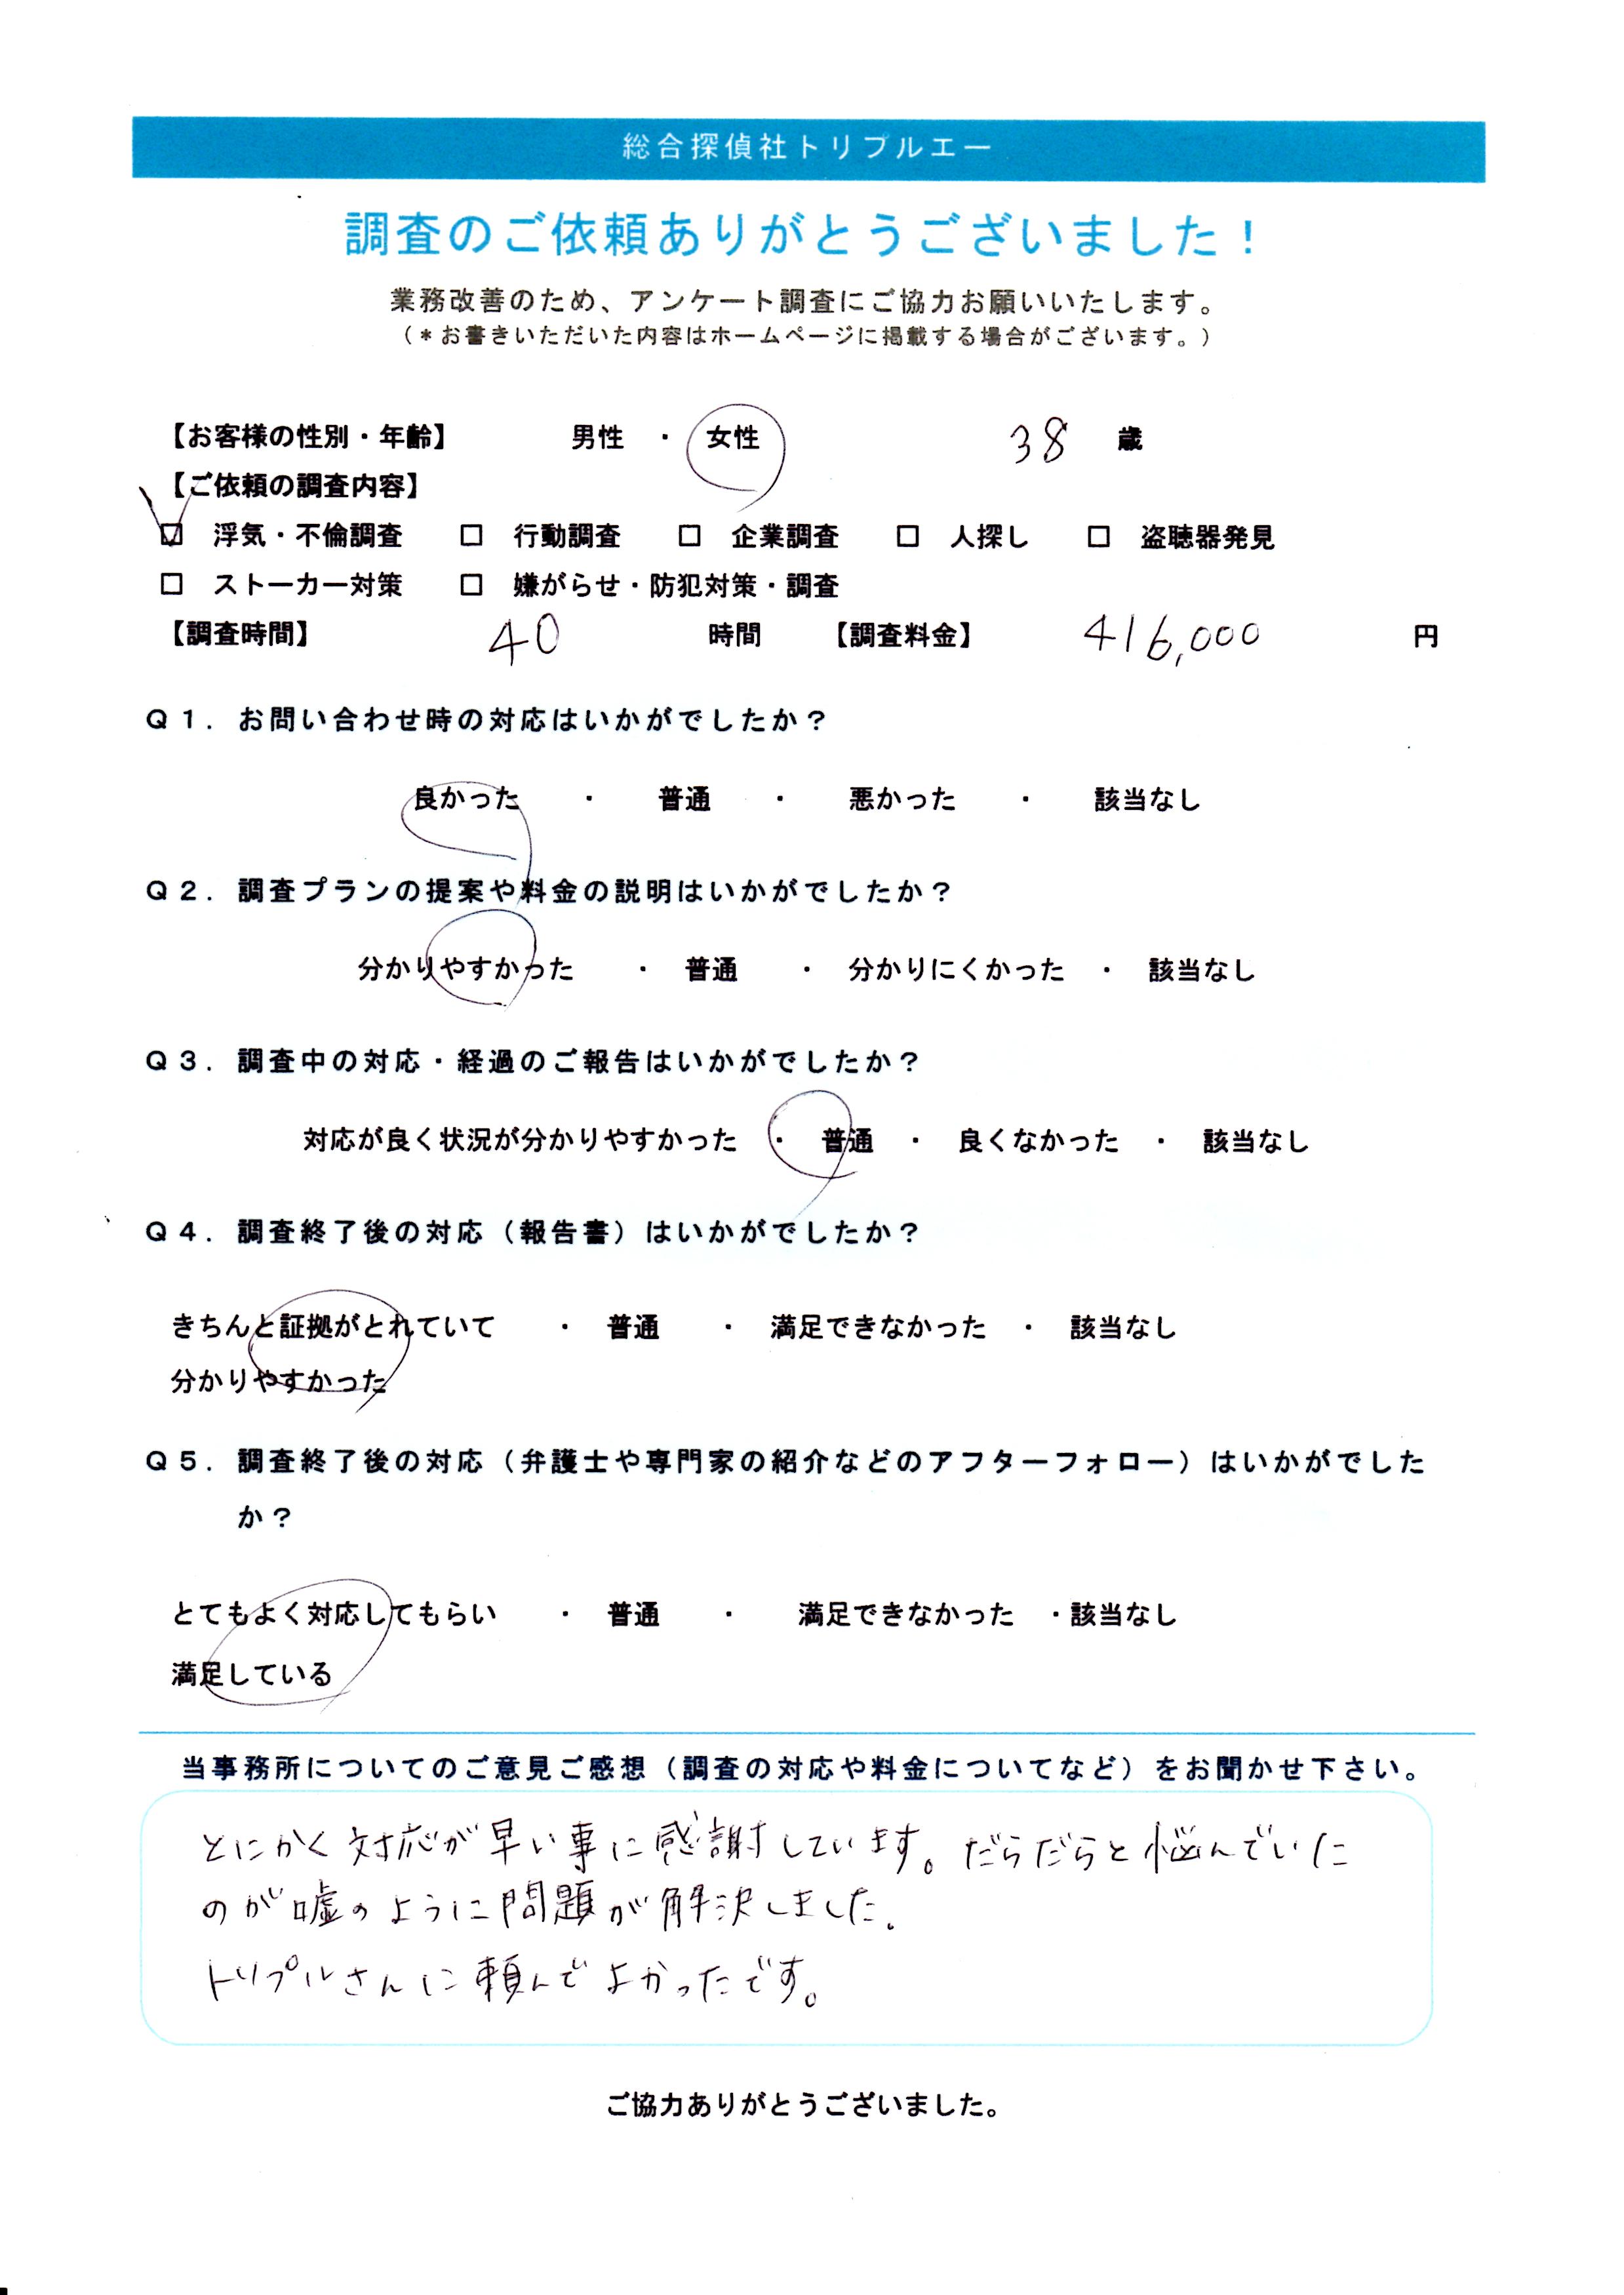 総合探偵社トリプルエー
調査のご依頼ありがとうございました！
業務改善のため、アンケート調査にご協力お願いいたします。
（＊お書きいただいた内容はホームページに掲載する場合がございます。）
【お客様の性別・年齢】 男性 ・ 女性 38 歳
【ご依頼の調査内容】
☑ 浮気・不倫調査 □ 行動調査 □ 企業調査 □ 人探し □ 盗聴器発見
□ ストーカー対策 □ 嫌がらせ・防犯対策・調査
【調査時間】 40 時間 【調査料金】 416,000 円
Ｑ１．お問い合わせ時の対応はいかがでしたか？
良かった ・ 普通 ・ 悪かった ・ 該当なし
Ｑ２．調査プランの提案や料金の説明はいかがでしたか？
分かりやすかった ・ 普通 ・ 分かりにくかった ・ 該当なし
Ｑ３．調査中の対応・経過のご報告はいかがでしたか？
対応が良く状況が分かりやすかった ・ 普通 ・ 良くなかった ・ 該当なし
Ｑ４．調査終了後の対応（報告書）はいかがでしたか？
きちんと証拠がとれていて ・ 普通 ・ 満足できなかった ・ 該当なし
分かりやすかった
Ｑ５．調査終了後の対応（弁護士や専門家の紹介などのアフターフォロー）はいかがでした
か？
とてもよく対応してもらい ・ 普通 ・ 満足できなかった ・該当なし
満足している
当事務所についてのご意見ご感想（調査の対応や料金についてなど）をお聞かせ下さい。
とにかく対応が早い事に感謝しています。だらだらと悩んでいた
のが嘘のように問題が解決しました。
トリプルさんに頼んでよかったです。
ご協力ありがとうございました。